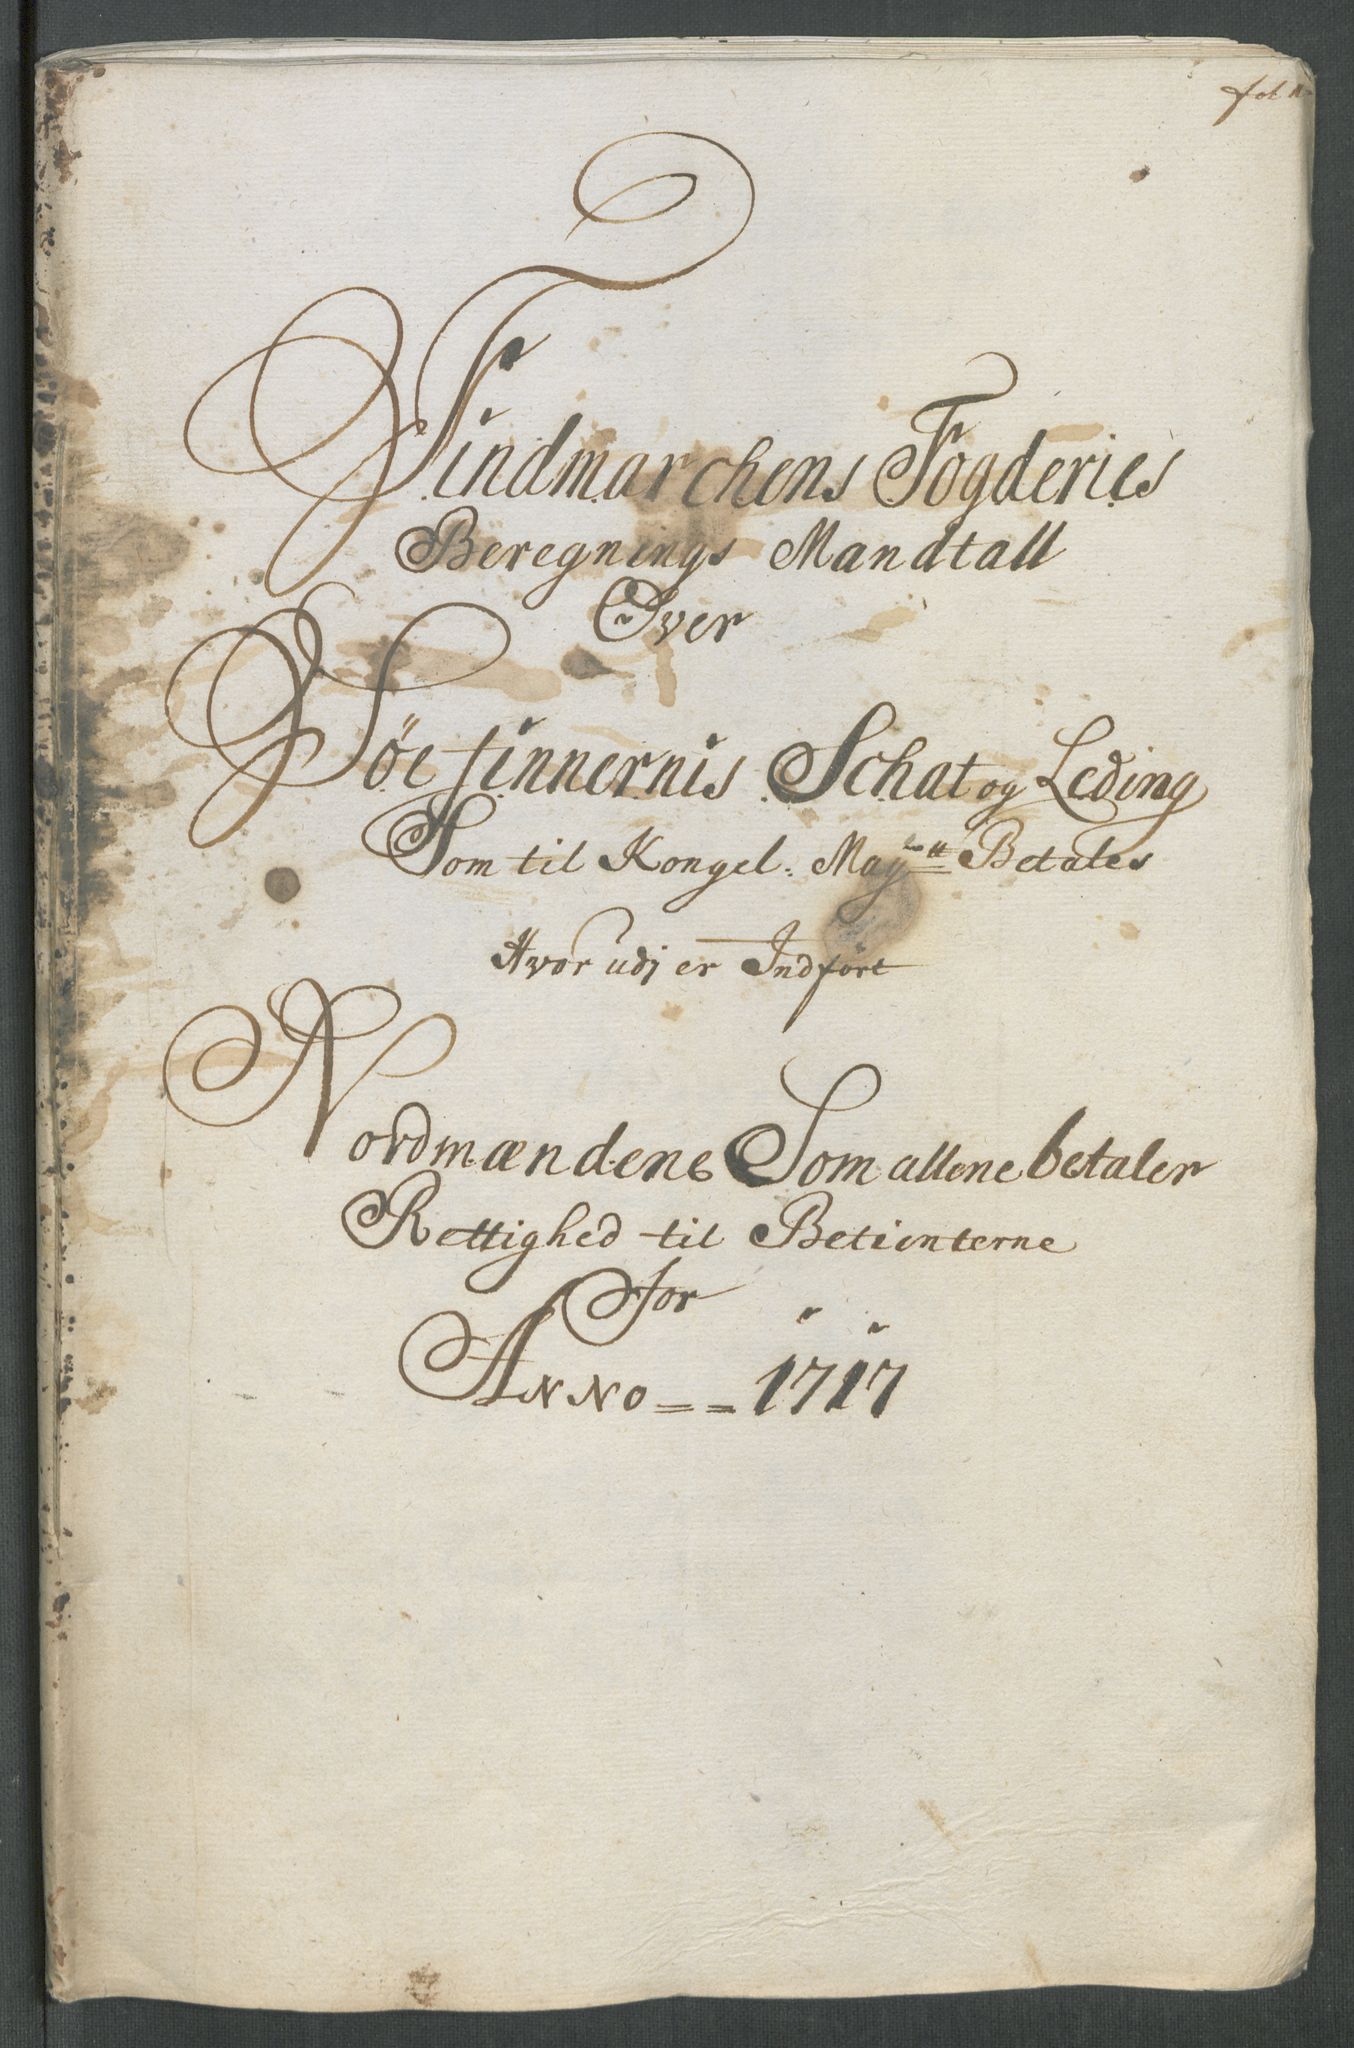 Findmarchens Fogderies
Beregnings Mandtall
Over
Søe finnernis Schat og Leding
Som til Kongel: May:tt Betales
Hvor udj er Indført
Nordmændene Som allene betaler
Rettighed til Betienterne
for
ANNO == 1717